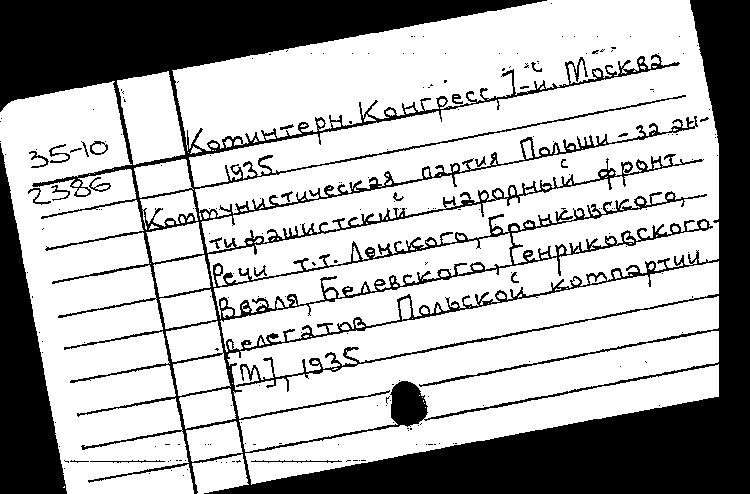 35-10
2386
Коминтерн. Конгресс, 7-й. Москва
1935.
Коммунистическая партия Польши - за ан-
тифашистский народный фронт.
Речи т.т. Ленского, Бронковского,
Эваля, Белевского, Генриковского -
делегатов Польской компартии.
[М.], 1935.